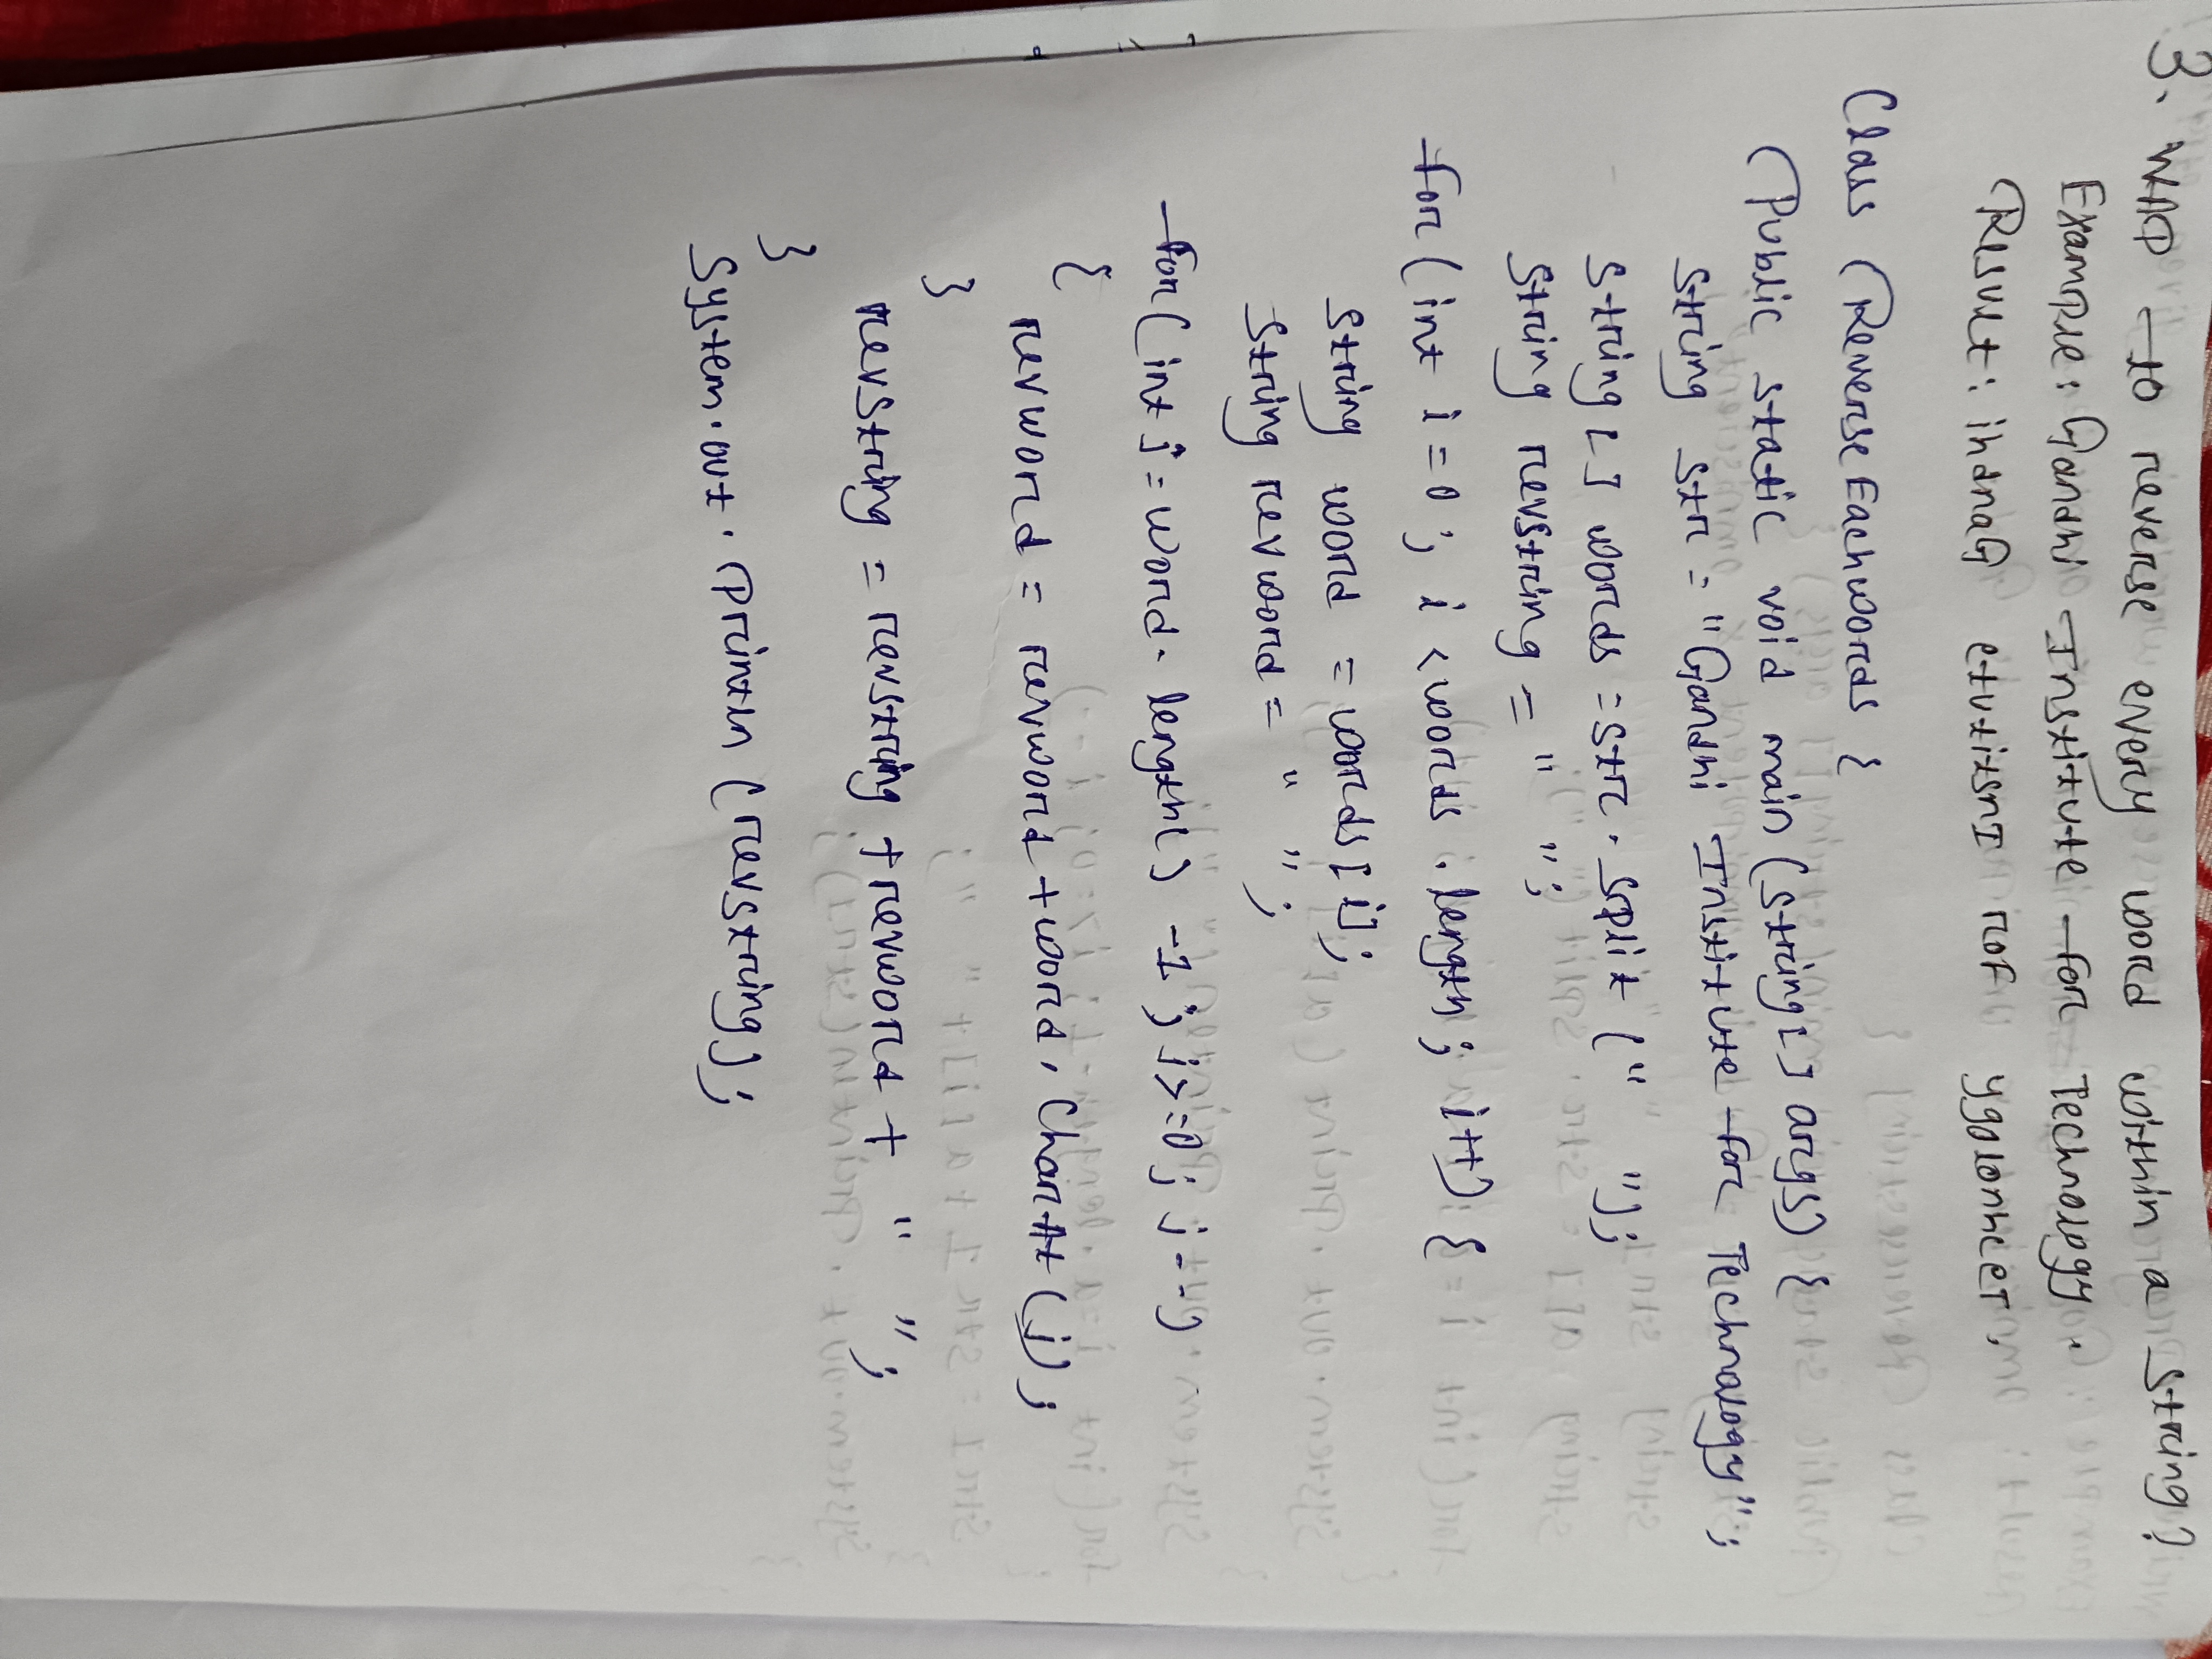 3. WAP to reverse every word within a string?
Example: Gandhi Institute for Technology.
Result: ihdnaG etutitsnI roF ygolonhceT.
Class ReverseEachwords {
Public static void main (string[] args) {
string str = "Gandhi Institute for Technology";
string[] words = str. split (" ");
string revstring = " ";
for (int i = 0; i < words . length; i++) {
string word = words [i];
string revword = " ";
for (int j = word. length() -1; j>=0; j--)
{
revword = revword + word. CharAt (j);
}
revstring = revstring + revword + " ";
}
System.out. Println (revstring);